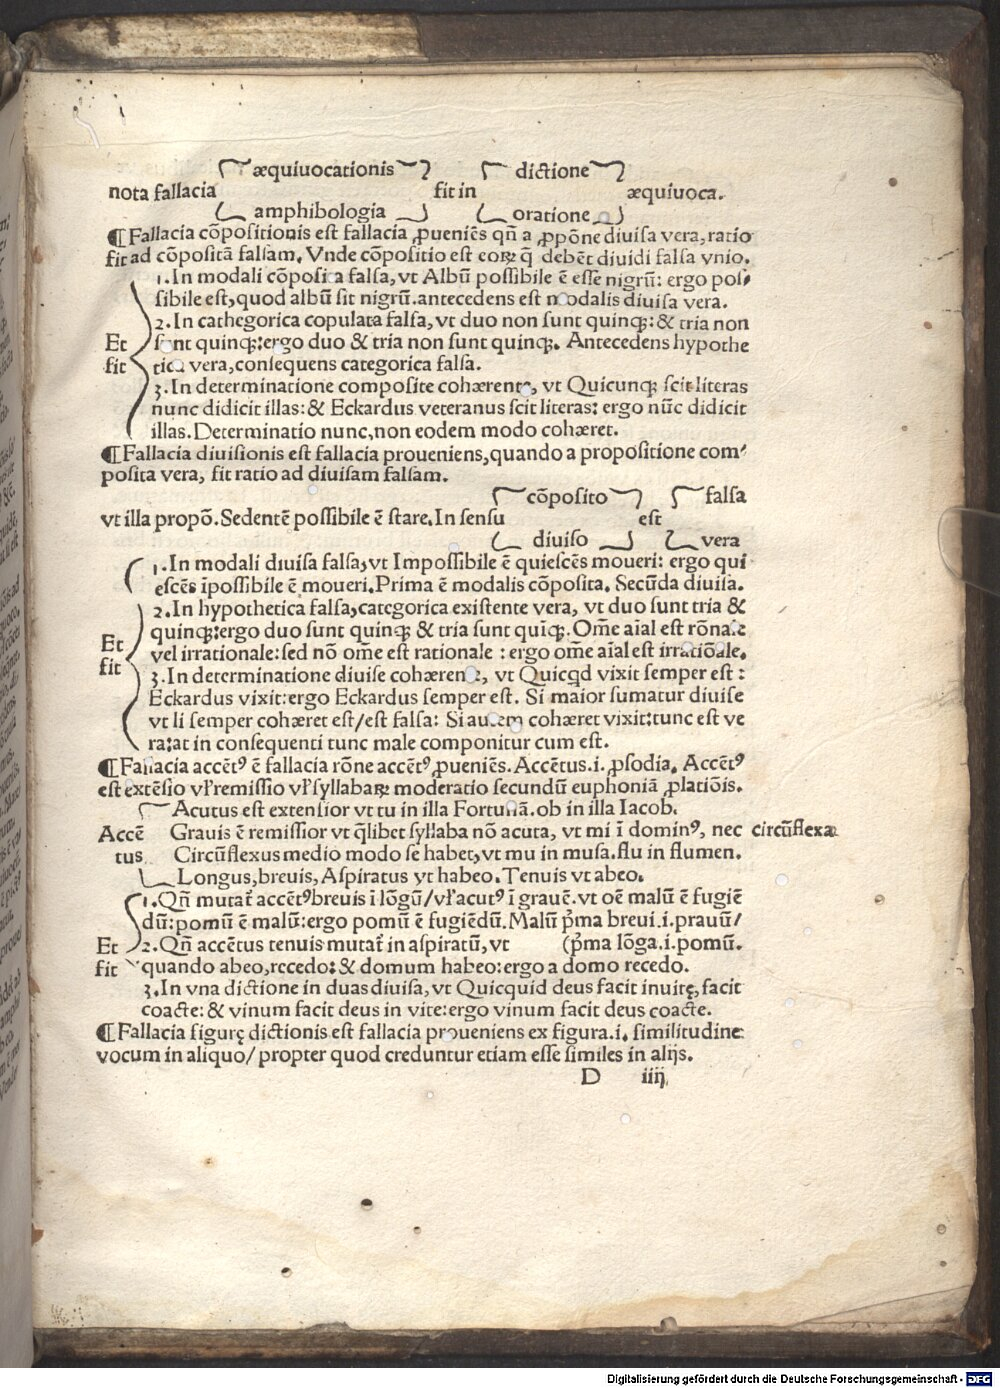 æquiuocationis dictione
nota fallacia fit in æquiuoca.
amphibologia oratione
¶Fallacia cõpositionis est fallacia ꝓueniẽs qñ a ꝓpõne diuisa vera, ratio
fit ad cõpositã falsam. Vnde cõpositio est eoꝝ q̃ debẽt diuidi falsa vnio.
1. In modali cõposita falsa, vt Albũ possibile ẽ esse nigrũ: ergo pos⸗
sibile est, quod albũ sit nigrũ. antecedens est modalis diuisa vera.
2. In cathegorica copulata falsa, vt duo non sunt quinqꝫ: & tria non
Et sunt quinqꝫ: ergo duo & tria non sunt quinqꝫ. Antecedens hypothe
fit tica vera, consequens categorica falsa.
3. In determinatione composite cohærente, vt Quicunqꝫ scit literas
nunc didicit illas: & Eckardus veteranus scit literas: ergo nũc didicit
illas. Determinatio nunc, non eodem modo cohæret.
¶Fallacia diuisionis est fallacia proueniens, quando a propositione com⸗
posita vera, fit ratio ad diuisam falsam.
cõposito falsa
vt illa propõ. Sedentẽ possibile ẽ stare. In sensu est
diuiso vera
1. In modali diuisa falsa, vt Impossibile ẽ quiescẽs moueri: ergo qui
escẽs ĩpossibile ẽ moueri. Prima ẽ modalis cõposita. Secũda diuisa.
2. In hypothetica falsa, categorica existente vera, vt duo sunt tria &
Et quinqꝫ: ergo duo sunt quinqꝫ & tria sunt quĩqꝫ. Om̃e aĩal est rõnale
fit vel irrationale: sed nõ om̃e est rationale : ergo om̃e aĩal est irratiõale.
3. In determinatione diuise cohærente, vt Quicqd vixit semper est :
Eckardus vixit: ergo Eckardus semper est. Si maior sumatur diuise
vt li semper cohæret est/est falsa: Si autem cohæret vixit: tunc est ve
ra: at in consequenti tunc male componitur cum est.
¶Fallacia accẽtꝰ ẽ fallacia rõne accẽtꝰ ꝓueniẽs. Accẽtus .i. ꝓsodia. Accẽtꝰ
est extẽsio vl̉ remissio vl̉ syllabaꝝ moderatio secundũ euphoniã ꝓlatiõis.
Acutus est extensior vt tu in illa Fortunã. ob in illa Iacob.
Accẽ Grauis ẽ remissior vt q̃libet syllaba nõ acuta, vt mi ĩ dominꝰ, nec circũflexa
tus Circũflexus medio modo se habet, vt mu in musa. flu in flumen.
Longus, breuis, Aspiratus vt habeo. Tenuis vt abeo.
1. Qñ mutat᷑ accẽtꝰ breuis ĩ lõgũ/vl̉ acutꝰ ĩ grauẽ. vt oẽ malũ ẽ fugiẽ
dũ: pomũ ẽ malũ: ergo pomũ ẽ fugiẽdũ. Malũ p̃ma breui .i. prauũ/
Et 2. Qñ accẽtus tenuis mutat᷑ in aspiratũ, vt (p̃ma lõga .i. pomũ.
fit quando abeo, recedo: & domum habeo: ergo a domo recedo.
3. In vna dictione in duas diuisa, vt Quicquid deus facit inuitę, facit
coacte: & vinum facit deus in vite: ergo vinum facit deus coacte.
¶Fallacia figurę dictionis est fallacia proueniens ex figura .i. similitudine
vocum in aliquo/propter quod creduntur etiam esse similes in alijs.
D iiij
Digitalisierung gefördert durch die Deutsche Forschungsgemeinschaft - DFG